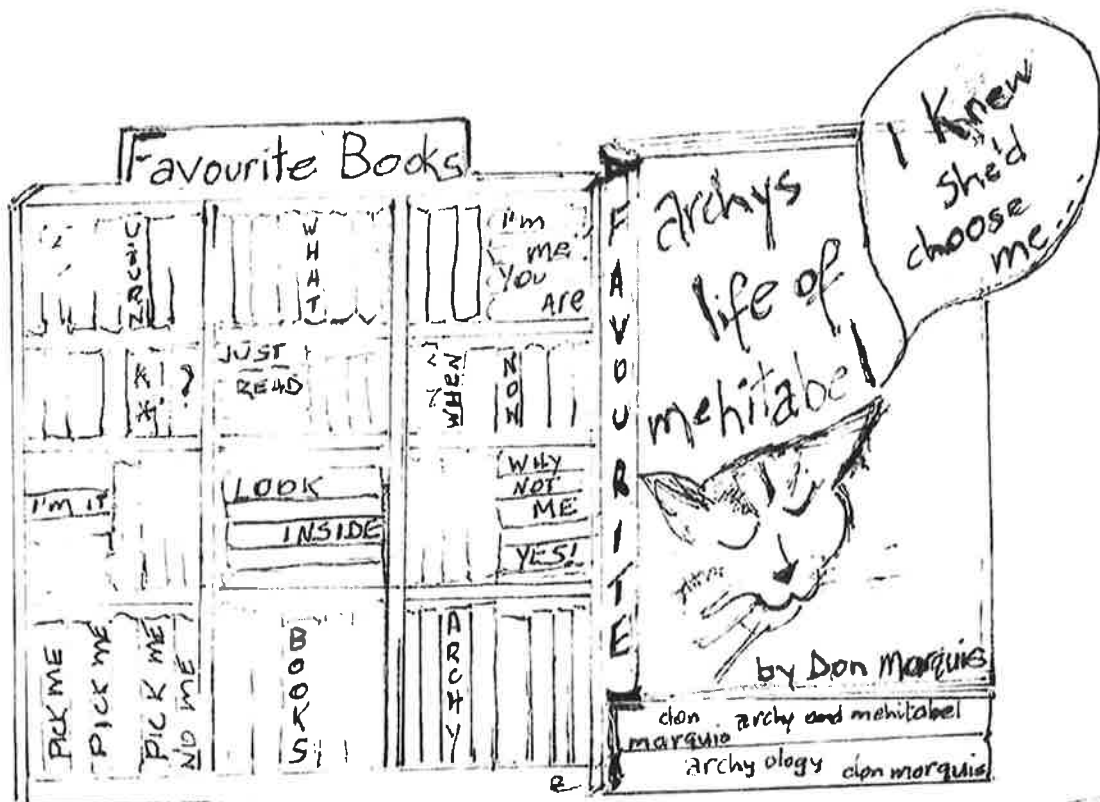 Favourite Books
WHAT
I'm
me
You
Are
? ?
JUST
READ
WHEN
NOW
I'm IT
LOOK
INSIDE
WHY
NOT
ME
YES!
PICK ME
PICK ME
PICK ME
NO ME
BOOKS
ARCHY
FAVOURITE
archys
life of
mehitabel
I Knew
she'd
choose
me...
by Don Marquis
don archy and mehitabel
marquis
archy ology don marquis